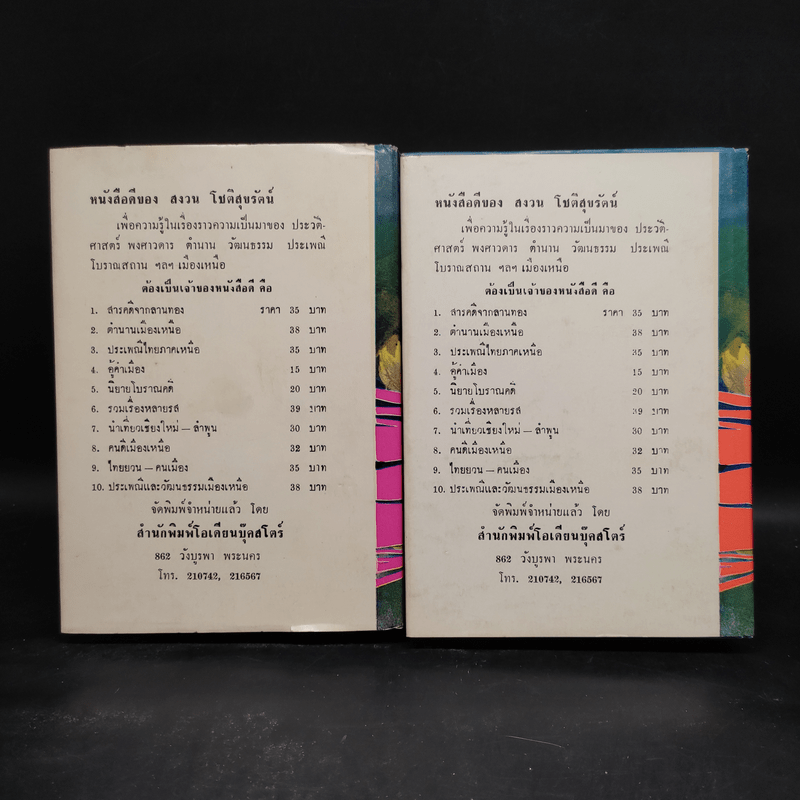 หนังสือดีของ สงวน โชติสุขรัตน์
เพื่อความรู้ในเรื่องราวความเป็นมาของ ประวัติ-
ศาสตร์ พงศาวดาร ตำนาน วัฒนธรรม ประเพณี
โบราณสถาน ฯลฯ เมืองเหนือ
ต้องเป็นเจ้าของหนังสือดี คือ
1. สารคดีจากลานทอง ราคา 35 บาท
2. ตำนานเมืองเหนือ 38 บาท
3. ประเพณีไทยภาคเหนือ 35 บาท
4. อู้คำเมือง 15 บาท
5. นิยายโบราณคดี 20 บาท
6. รวมเรื่องหลายรส 39 บาท
7. นำเที่ยวเชียงใหม่ – ลำพูน 30 บาท
8. คนดีเมืองเหนือ 32 บาท
9. ไทยยวน – คนเมือง 35 บาท
10. ประเพณีและวัฒนธรรมเมืองเหนือ 38 บาท
จัดพิมพ์จำหน่ายแล้ว โดย
สำนักพิมพ์โอเดียนบุ๊คสโตร์
862 วังบูรพา พระนคร
โทร. 210742, 216567
หนังสือดีของ สงวน โชติสุขรัตน์
เพื่อความรู้ในเรื่องราวความเป็นมาของ ประวัติ-
ศาสตร์ พงศาวดาร ตำนาน วัฒนธรรม ประเพณี
โบราณสถาน ฯลฯ เมืองเหนือ
ต้องเป็นเจ้าของหนังสือดี คือ
1. สารคดีจากลานทอง ราคา 35 บาท
2. ตำนานเมืองเหนือ 38 บาท
3. ประเพณีไทยภาคเหนือ 35 บาท
4. อู้คำเมือง 15 บาท
5. นิยายโบราณคดี 20 บาท
6. รวมเรื่องหลายรส 39 บาท
7. นำเที่ยวเชียงใหม่ – ลำพูน 30 บาท
8. คนดีเมืองเหนือ 32 บาท
9. ไทยยวน – คนเมือง 35 บาท
10. ประเพณีและวัฒนธรรมเมืองเหนือ 38 บาท
จัดพิมพ์จำหน่ายแล้ว โดย
สำนักพิมพ์โอเดียนบุ๊คสโตร์
862 วังบูรพา พระนคร
โทร. 210742, 216567